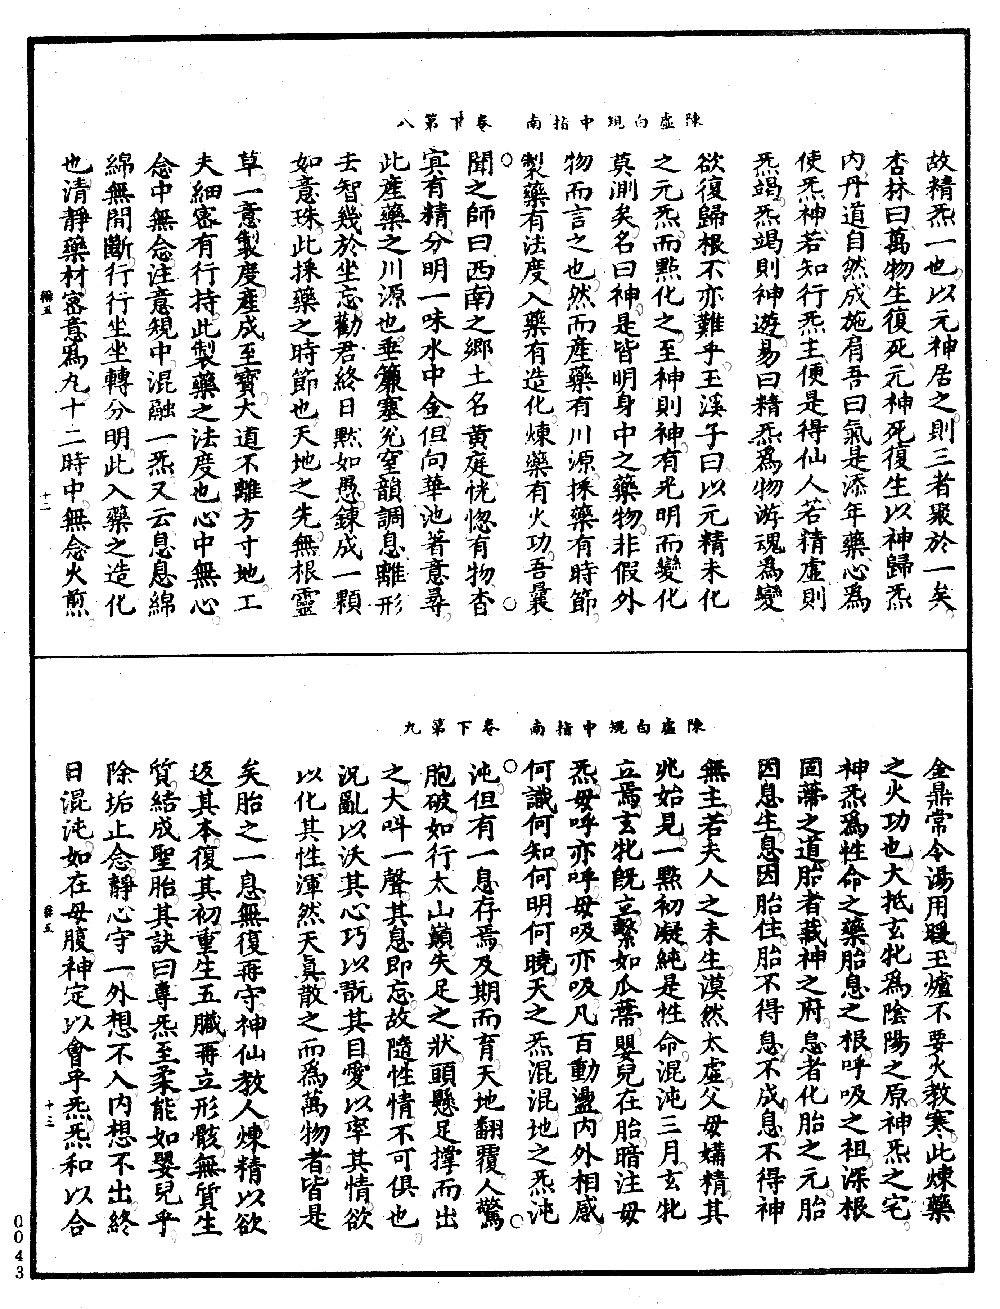 陳虛白規中指南　卷下第八
故精炁一也以元神居之則三者聚於一矣
杏林曰萬物生復死元神死復生以神歸炁
內丹道自然成施肩吾曰氣是添年藥心爲
使炁神若知行炁主便是得仙人若精虛則
炁竭炁竭則神遊易曰精炁爲物游魂爲變
欲復歸根不亦難乎玉溪子曰以元精未化
之元炁而點化之至神則神有光明而變化
莫測矣名曰神是皆明身中之藥物非假外
物而言之也然而產藥有川源採藥有時節
製藥有法度入藥有造化煉藥有火功吾曩
聞之師曰西南之鄉土名黃庭恍惚有物杳
冥有精分明一味水中金但向華池著意尋
此產藥之川源也垂簾塞兌窒韻調息離形
去智幾於坐忘勸君終日默如愚鍊成一顆
如意珠此採藥之時節也天地之先無根靈
草一意製度產成至寶大道不離方寸地工
夫細密有行持此製藥之法度也心中無心
念中無念注意規中混融一炁又云息息綿
綿無間斷行行坐坐轉分明此入藥之造化
也清靜藥材密意爲丸十二時中無念火煎
十二
陳虛白規中指南　卷下第九
金鼎常令湯用暖玉爐不要火教寒此煉藥
之火功也大抵玄牝爲陰陽之原神炁之宅
神炁爲性命之藥胎息之根呼吸之祖深根
固蔕之道胎者藏神之府息者化胎之元胎
因息生息因胎住胎不得息不成息不得神
無主若夫人之未生漠然太虛父母媾精其
兆始見一點初凝純是性命混沌三月玄牝
立焉玄牝旣立繫如瓜蔕嬰兒在胎暗注母
炁母呼亦呼母吸亦吸凡百動盪內外相感
何識何知何明何曉天之炁混混地之炁沌
沌但有一息存焉及期而育天地翻覆人驚
胞破如行太山巔失足之狀頭懸足撑而出
之大呌一聲其息即忘故隨性情不可俱也
況亂以沃其心巧以翫其目愛以率其情欲
以化其性渾然天眞散之而爲萬物者皆是
矣胎之一息無復再守神仙教人煉精以欲
返其本復其初重生五臟再立形骸無質生
質結成聖胎其訣曰專炁至柔能如嬰兒乎
除垢止念靜心守一外想不入內想不出終
日混沌如在母腹神定以會乎炁炁和以合
十三
0043